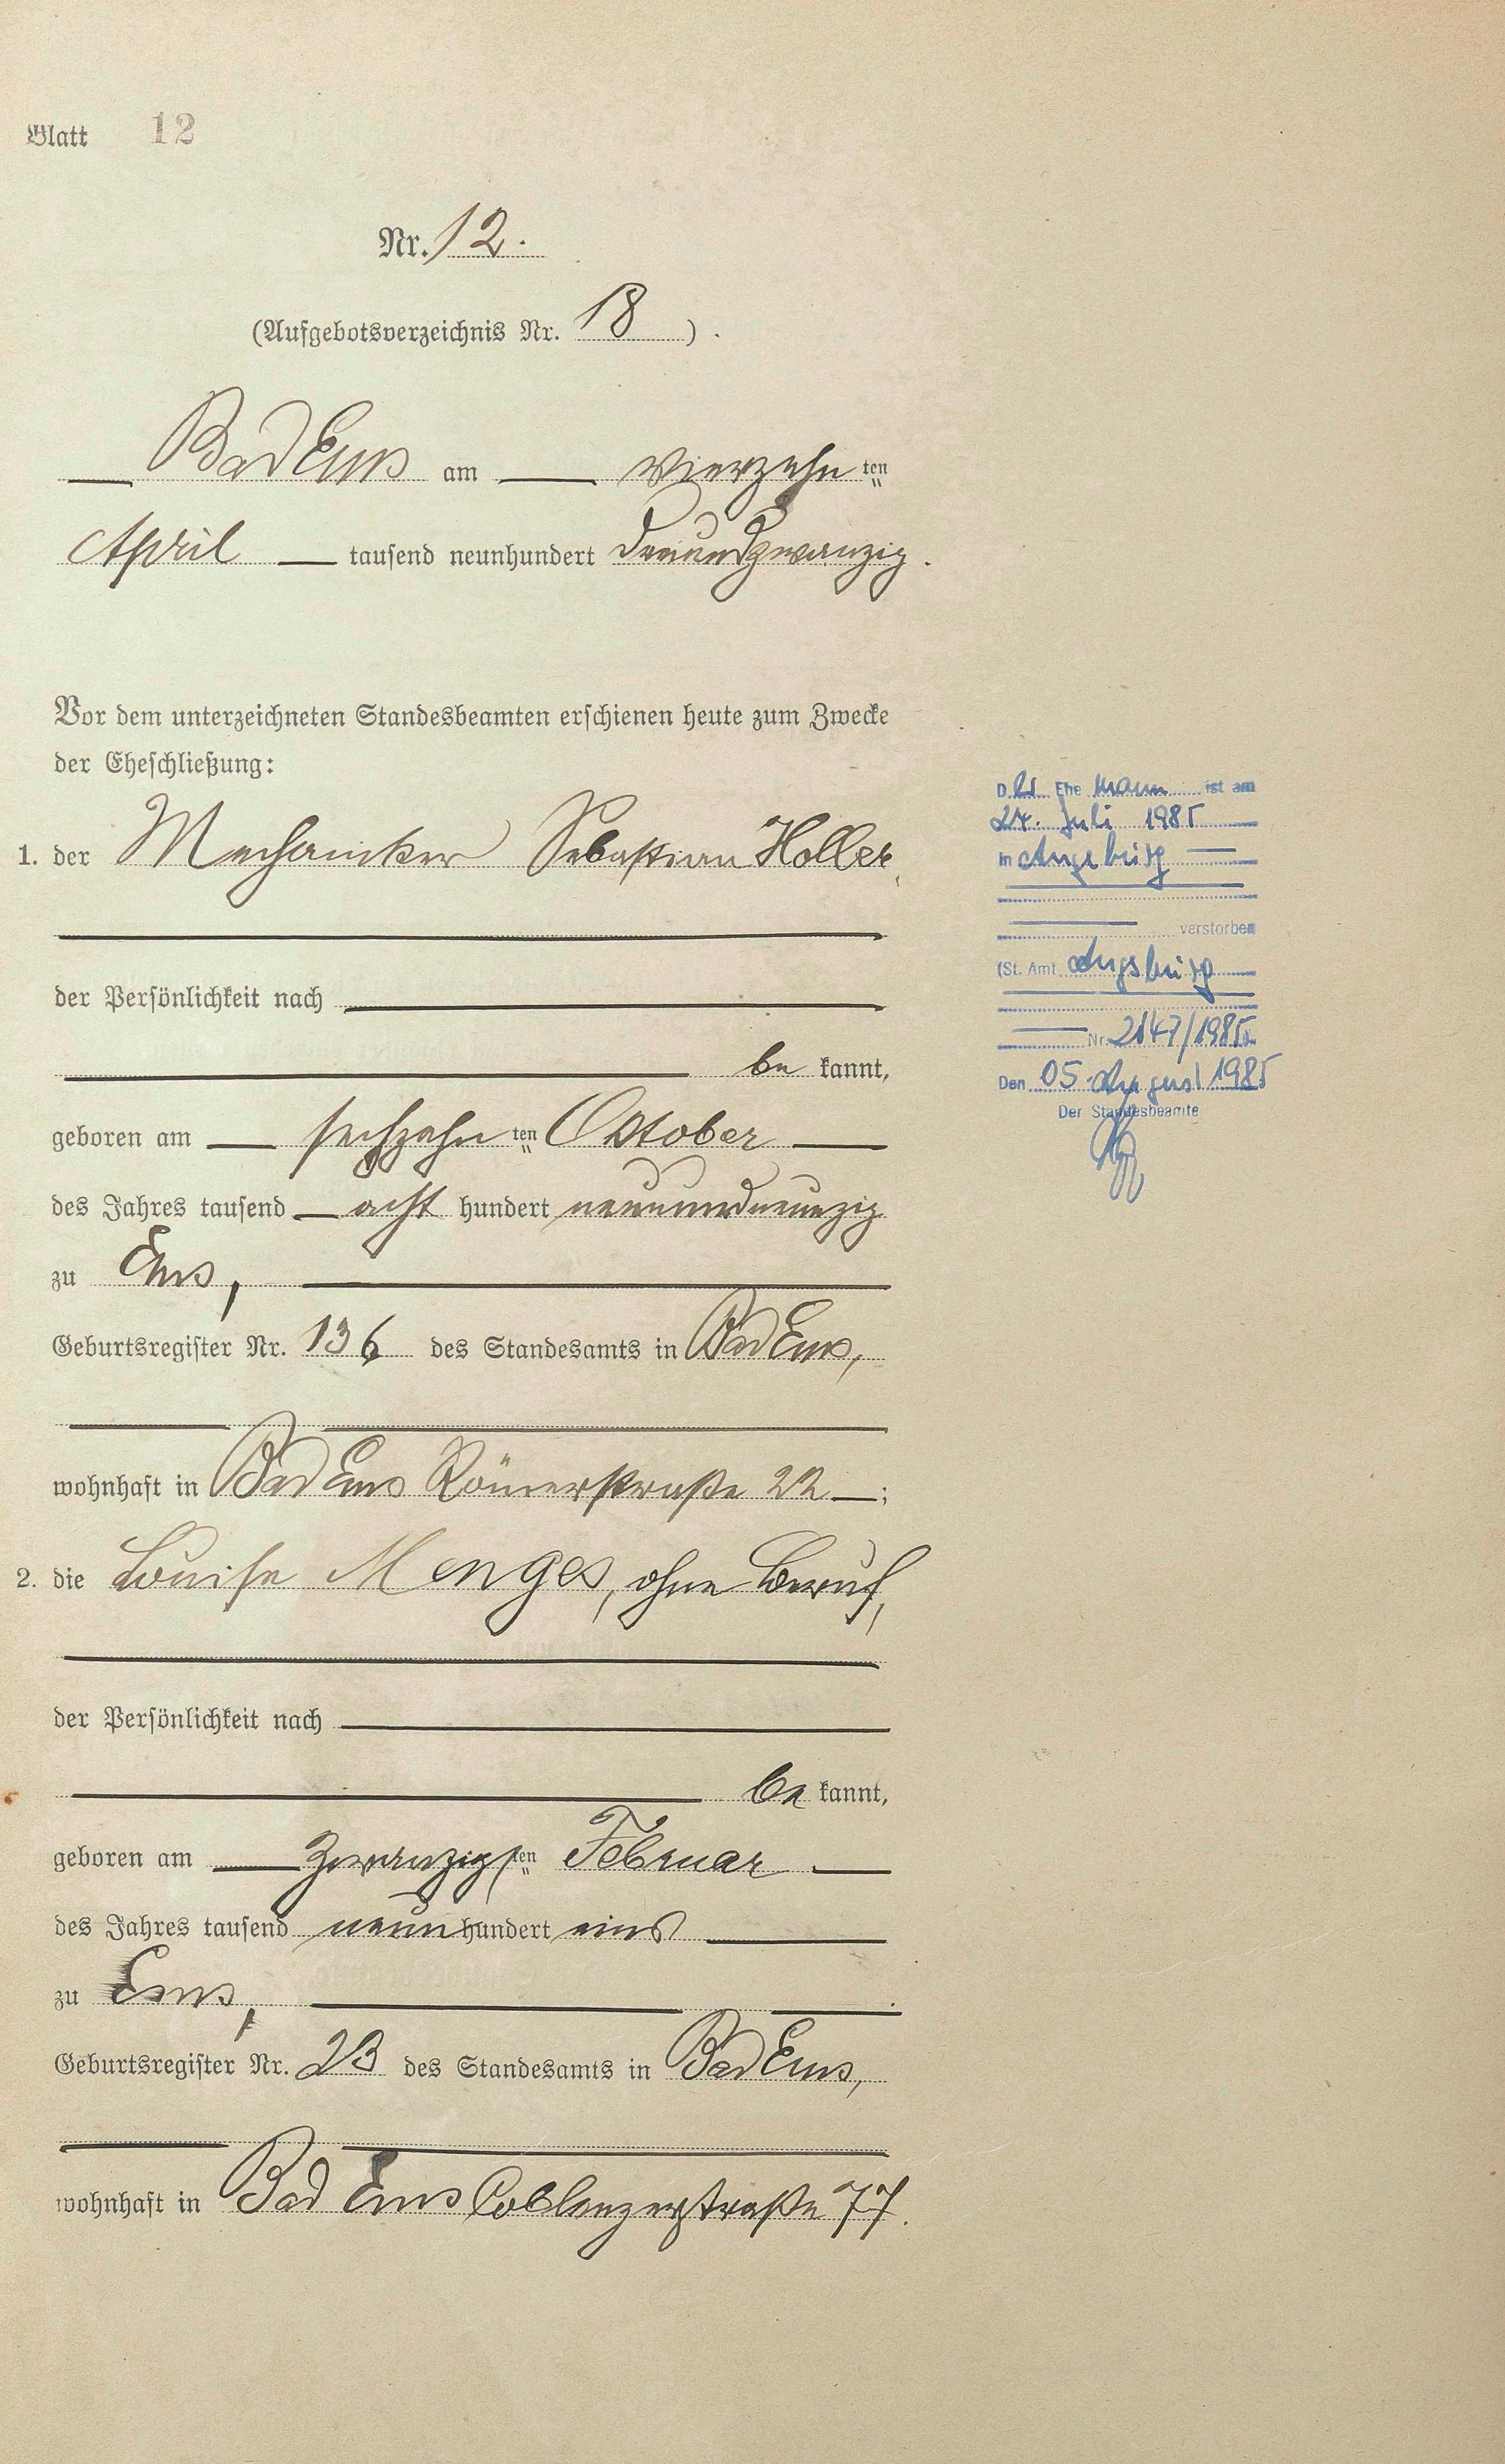 Blatt 12
Nr. 12.
(Aufgebotsverzeichnis Nr. 18).
Bad Ems am vierzehn ten
April tausend neunhundert dreiundzwanzig.
Vor dem unterzeichneten Standesbeamten erschienen heute zum Zwecke
der Eheschließung:
1. der Mechaniker Sebastian Holler,
der Persönlichkeit nach
be kannt,
geboren am sechzehn ten Oktober
des Jahres tausend acht hundert neunundneunzig
zu Ems,
Geburtsregister Nr. 136 des Standesamts in Bad Ems,
wohnhaft in Bad Ems Römerstraße 22;
2. die Louise Menges, ohne Beruf,
der Persönlichkeit nach
be kannt,
geboren am zwanzigsten Februar
des Jahres tausend neun hundert eins
zu Ems,
Geburtsregister Nr. 23 des Standesamts in Bad Ems,
wohnhaft in Bad Ems Coblenzerstraße 77.
Der Ehe mann ist am
24. Juli 1985
in Augsburg
verstorben
(St. Amt Augsburg
Nr. 2147/1985)
Den 05. August 1985
Der Standesbeamte